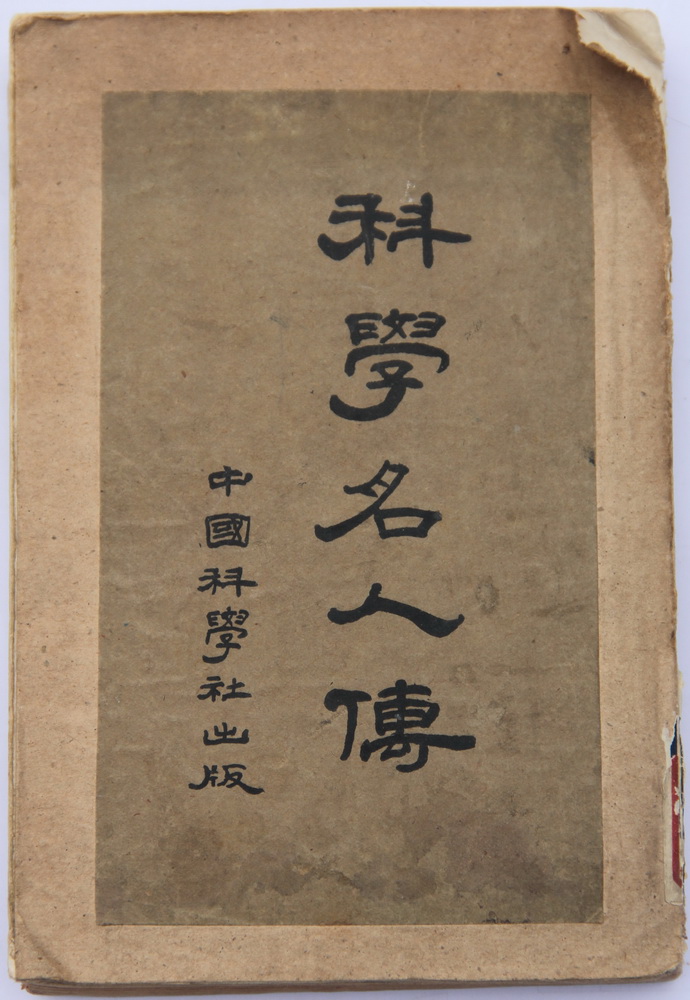 科學名人傳
中國科學社出版